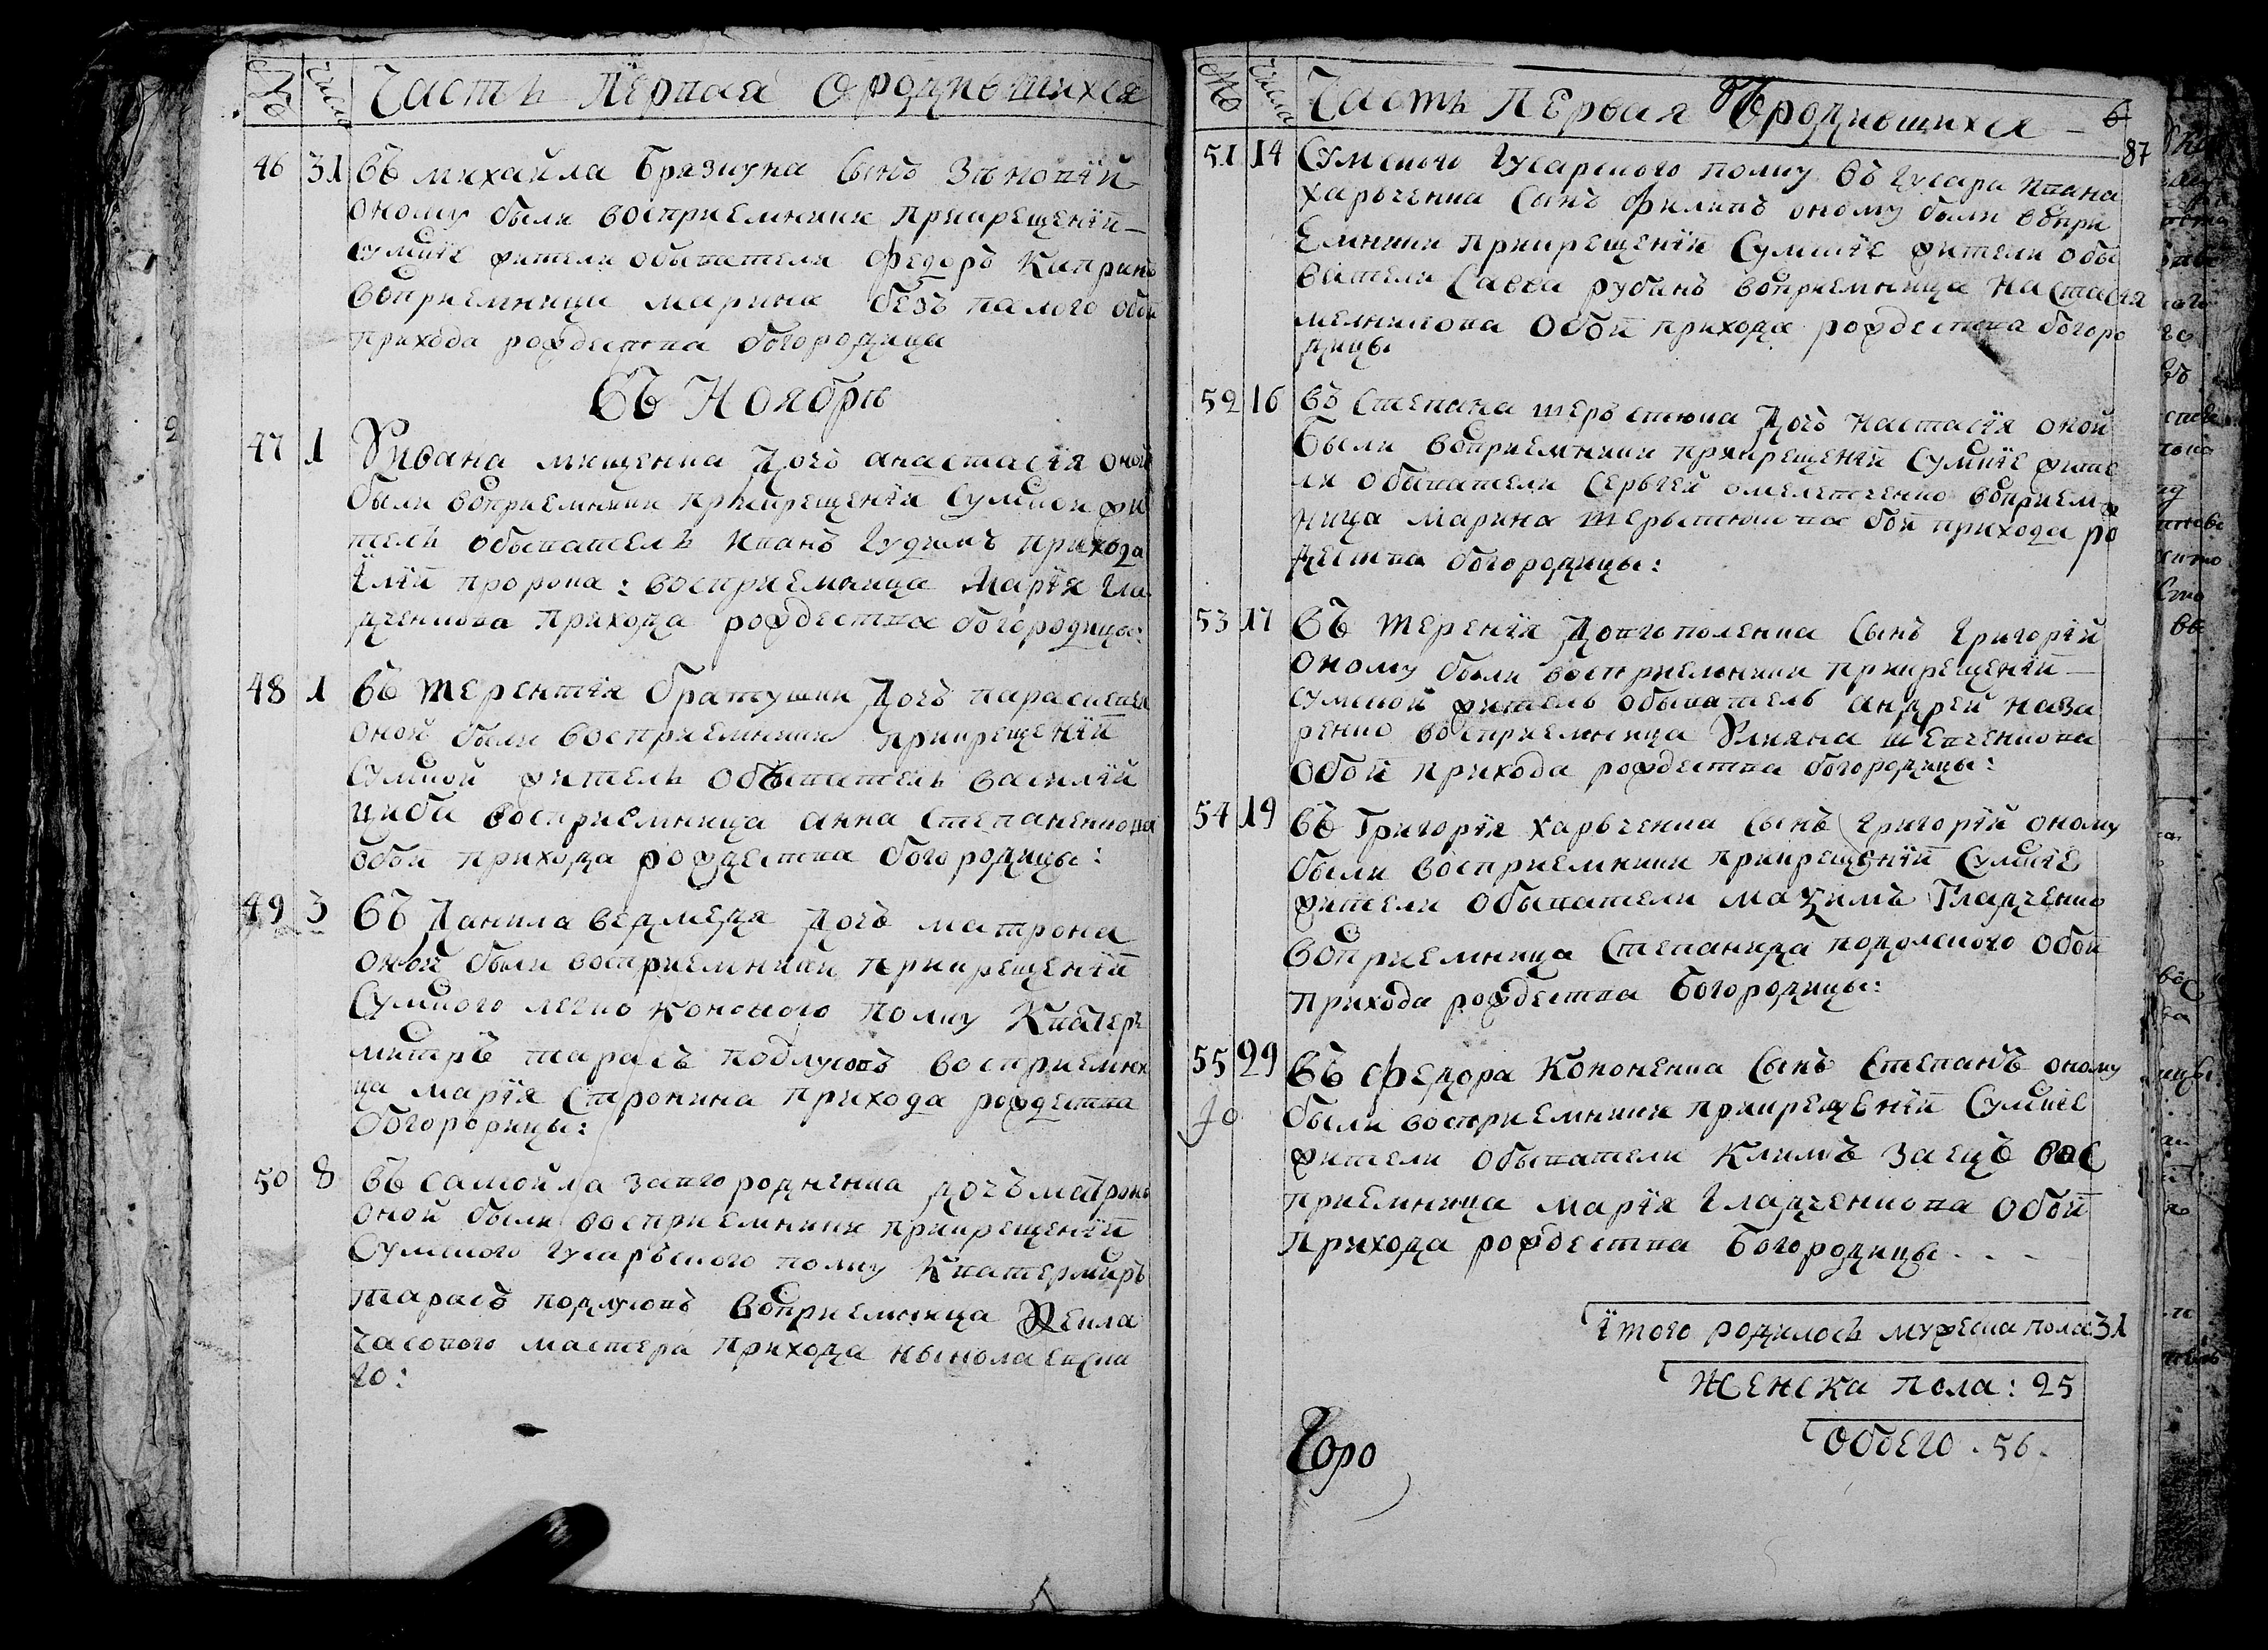 № Числа Часть Первая о родившихся
46 31 въ михайла брязкуна сынъ Зѣновїй
оному были восприемники прикрещенїи
сумскїе жители обыватели Федоръ Каприн
воприемници марина безъ палого обои
прихода рождества богородици
въ Ноябрѣ
47 1 У ивана мищенка дочь анастасїя оной
были воприемники прикрещенїи Сумской жи
тель обыватель иванъ гудимъ прихода
їлїи пророка: восприемница Марїя гла
дченкова прихода рождества богородицы:
48 1 въ терентїя братушки дочь параскевїя
оной были восприемники прикрещенїи
Сумской житель обыватель василїй
циба восприемница анна степаненкова
обои прихода рождества богородицы:
49 3 въ Данила ведмедя дочь матрона
оной были восприемники прикрещенїи
Сумского легко конского полку Кватер
митръ тарасъ подлусовъ восприемни
ца марїя Стронина прихода рождества
богородицы:
50 8 въ самойла завгородненка дочъ матрона
оной были восприемники прикрещенїи
Сумского гусарьского полку Кватермиръ
тарасъ подлусовъ воприемница Фекла
часового мастера прихода нынолаевска
го:
№ Числа Часть Первая о родившихся 6
87
51 14 Сумского гусарского полку въ гусара ивана
харьченка сынъ филипъ оному были вопри
емники прикрещенїи Сумскїе жители обы
ватели Савва рубанъ воприемница настасїя
мелникова обои прихода рождества богоро
дицы
52 16 въ Степана шерьстюка дочь настасїя оной
были воприемники прикрещенїи Сумскїе жите
ли обыватели Сергей омелетченко воприем
ница марина шерьстюкова обои прихода рож
дества богородицы:
53 17 въ терентїя довгополенка сынъ григорїй
оному были восприемники прикрещенїи
сумской житель обыватель андрей наза
ренко восприемница Улияна шевченкова
обои прихода рождества богородицы:
54 19 въ григорїя харьченка сынъ григорїй оному
были восприемники прикрещенїи Сумскїе
жители обыватели маѯимъ гладченко
воприемница Степанида подолского обои
прихода рождества богородицы:
55 29 въ Федора Кононенка сынъ Степанъ оному
были восприемники прикрещенїи Сумскїе
жители обыватели Климъ заецъ вос
приемница марїя гладченкова обои
прихода рождества богородицы
їтого родилось мужеска пола 31
Женска пола: 25
Обоего . 56.